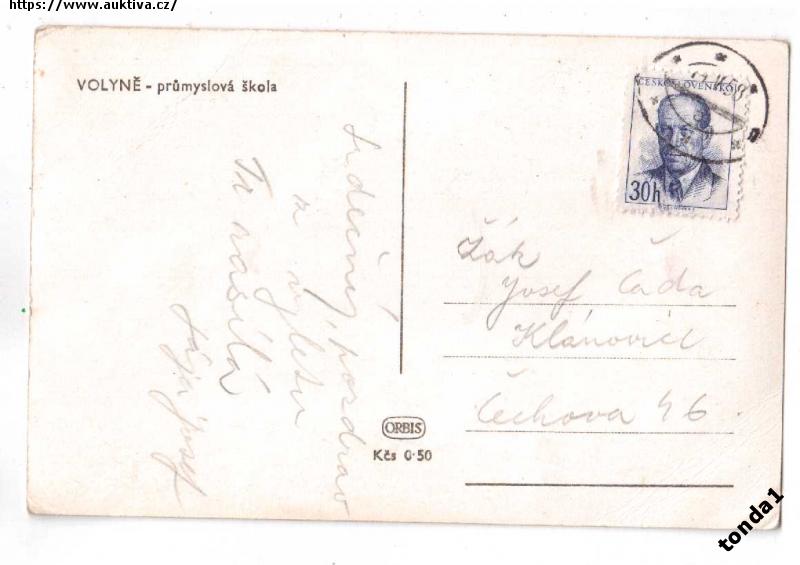 https://www.auktiva.cz/
VOLYNĚ - průmyslová škola
Srdečný pozdrav
z výletu
Ti zasílá
Josef
ČESKOSLOVENSKO
30h
Žák
Josef Čada
Klánovice
Čechova 46
ORBIS
Kčs 0·50
tonda1